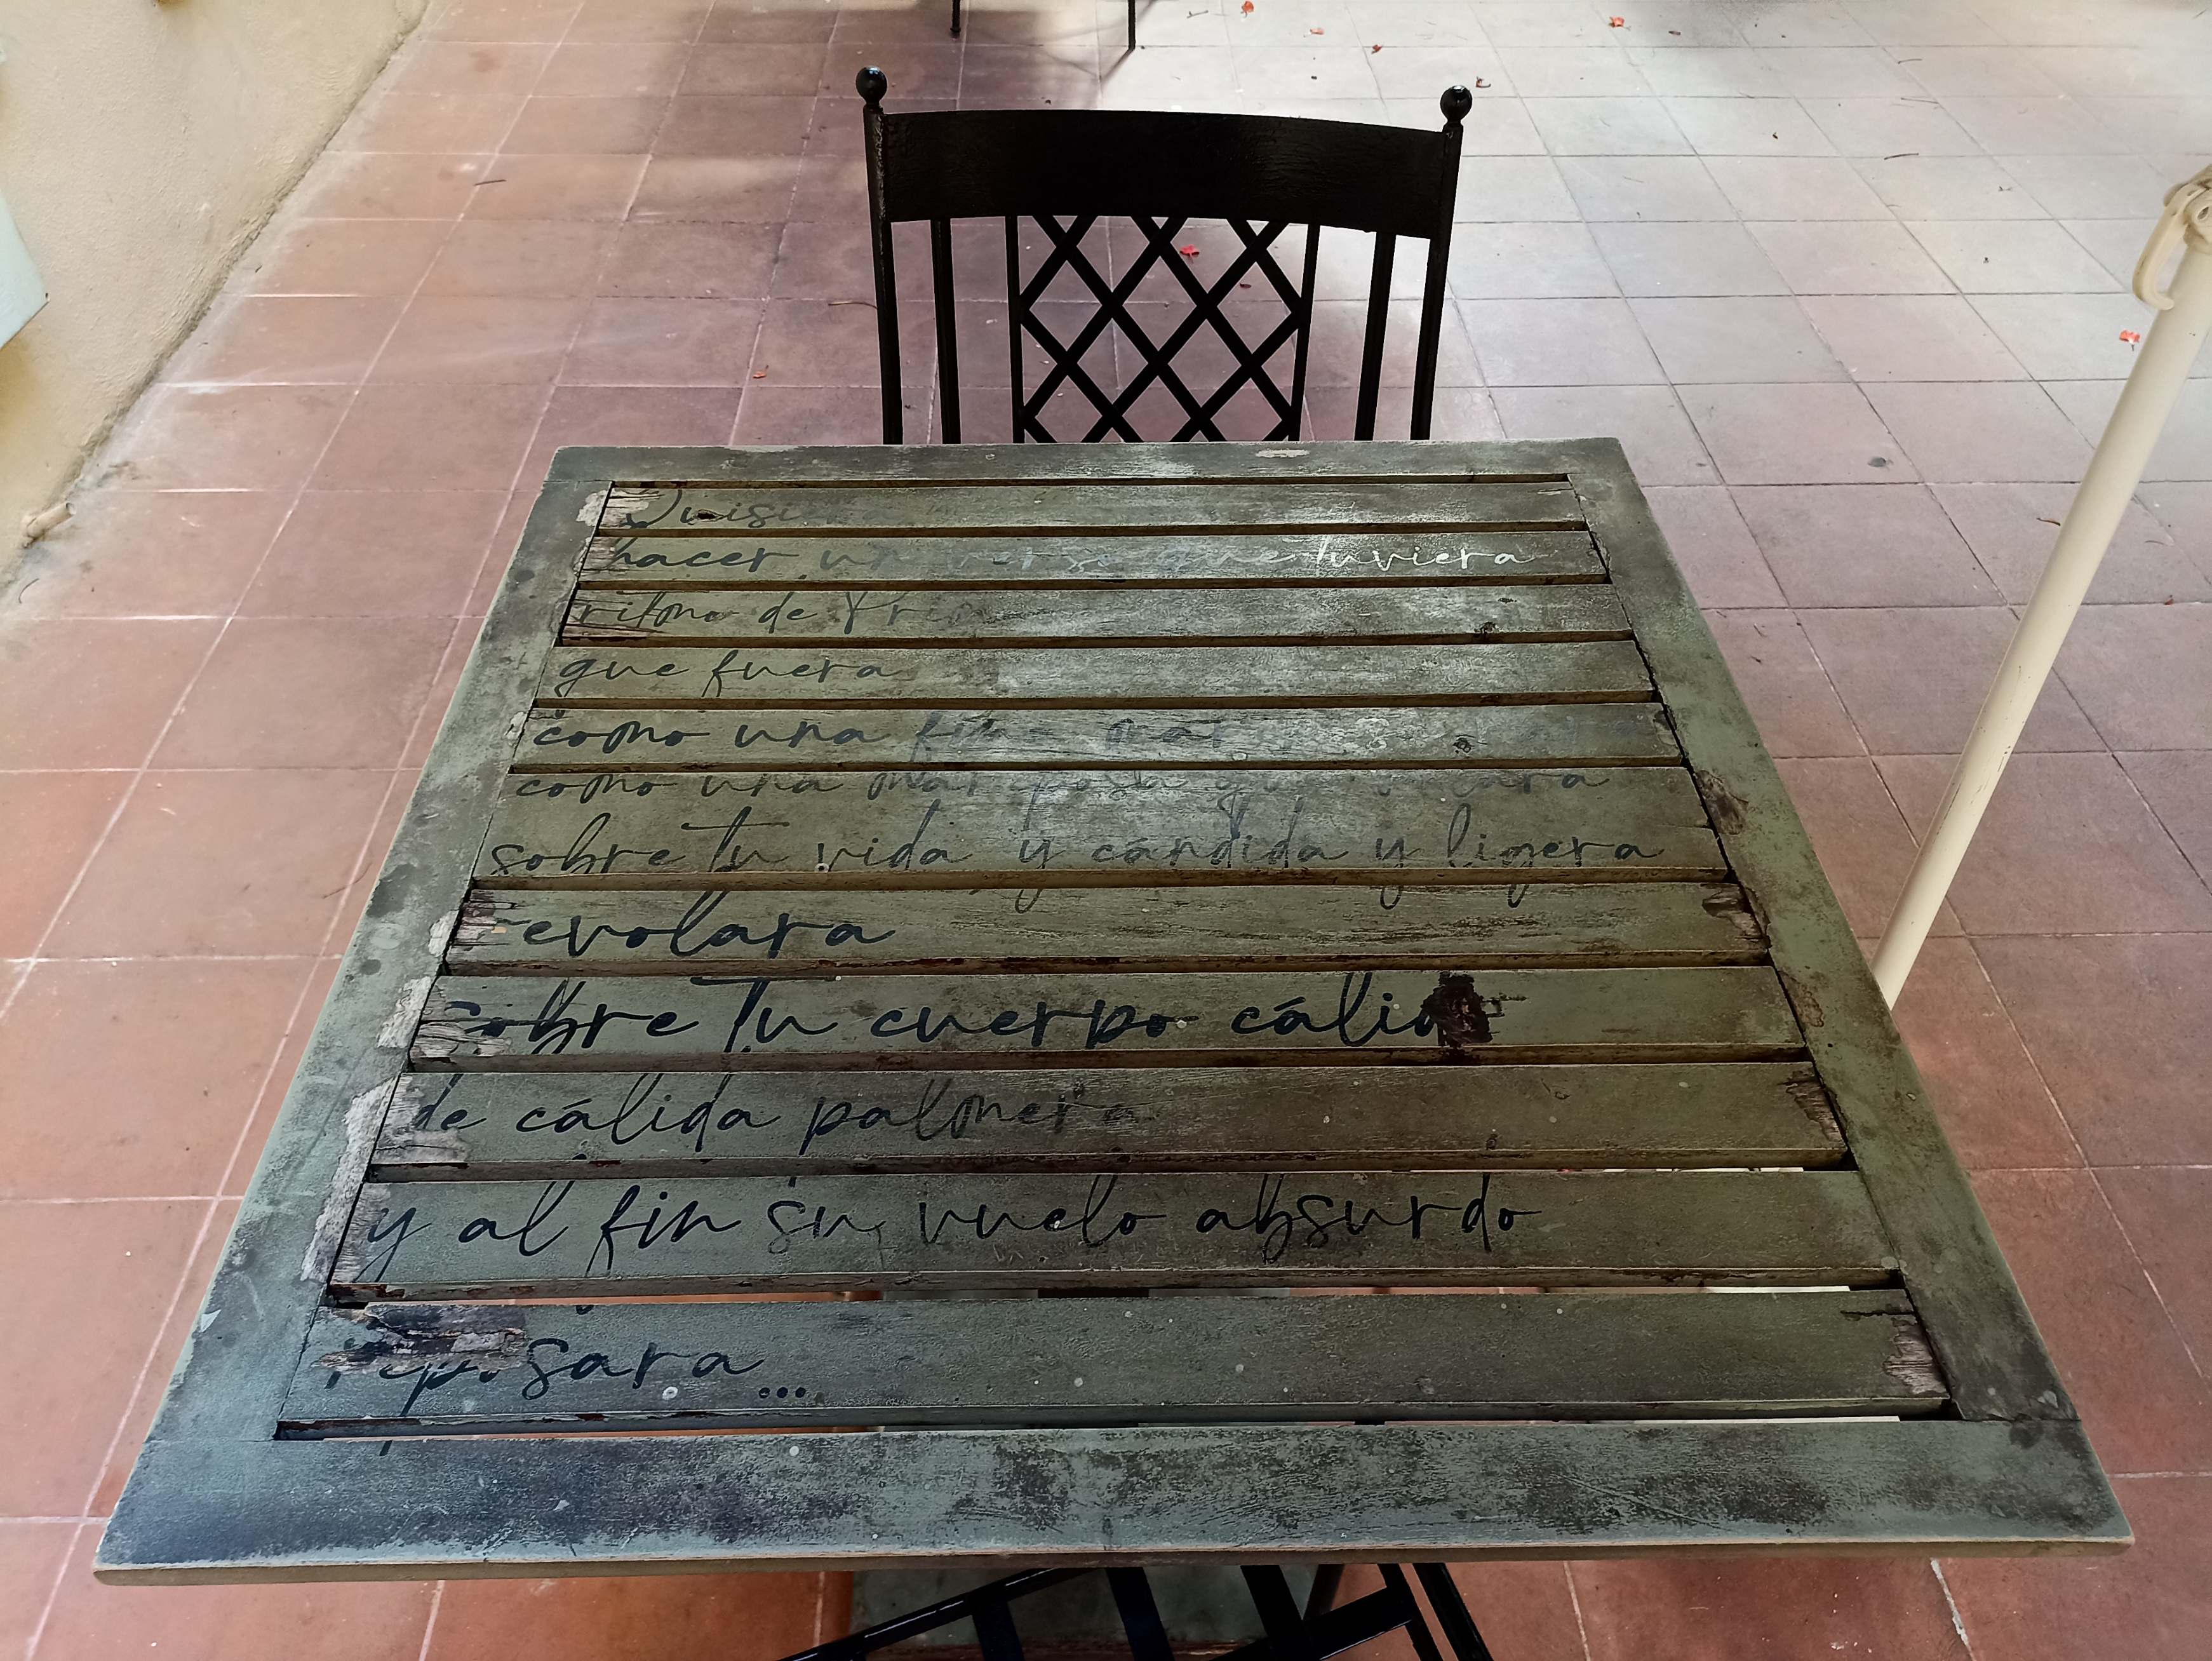 hacer un verso que tuviera
ritmo de
que fuera
como una
como una mariposa que
sobre tu vida y cándida y ligera
revolara
sobre tu cuerpo cálido
de cálida palmera
y al fin su vuelo absurdo
reposara...